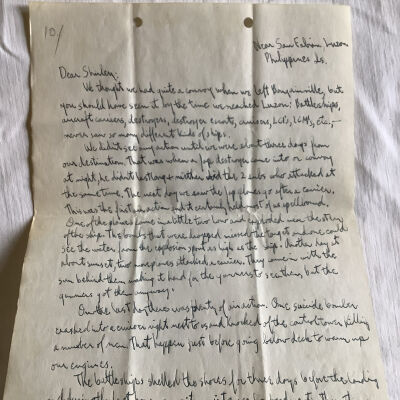 10/
Near San Fabian, Luzon
Philippines Is.
Dear Shirley:
We thought we had quite a convoy when we left Bougainville, but
you should have seen it by the time we reached Luzon: Battleships,
aircraft carriers, destroyers, destroyer escorts, cruisers, LCI's, LSM's, etc.,—
never saw so many different kinds of ships.
We didn't see any action until we were about three days from
our destination. That was when a Jap destroyer came into our convoy
at night, he didn't last long & neither did the 2 subs who attacked at
the same time. The next day we saw the Jap planes go after a carrier.
This was the first action and it certainly held most of us spellbound.
One of the planes came in a little too low and exploded near the stern
of the ship. The bombs that were dropped missed the target and one could
see the water from the explosion spout as high as the ship. Another day at
about sunset, two more planes attacked a carrier. They came in with the
sun behind them making it hard for the gunners to see them, but the
gunners got them anyway.
On the last day there was plenty of air action. One suicide bomber
crashed into a cruiser right next to us and knocked off the control tower, killing
a number of men. That happen just before going below deck to warm up
our engines.
The battleships shelled the shores for three days before the landing